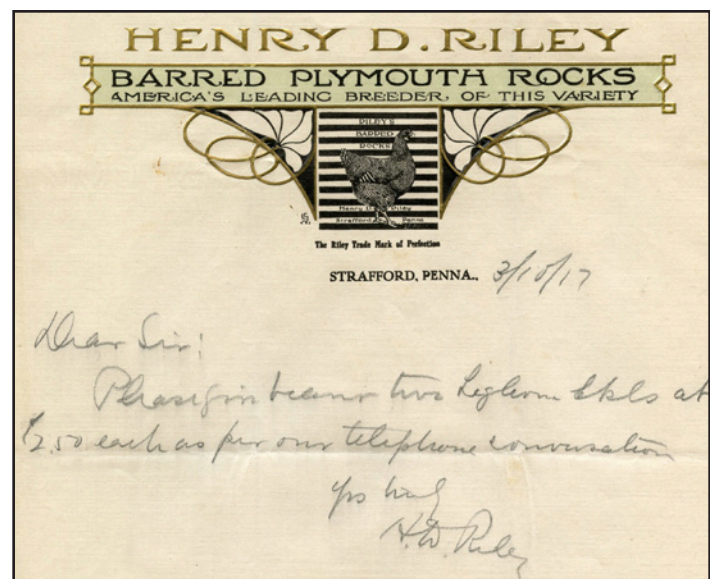 HENRY D. RILEY
BARRED PLYMOUTH ROCKS
AMERICA'S LEADING BREEDER OF THIS VARIETY
RILEY'S
BARRED
ROCKS
Henry D. Riley
Strafford Penna
The Riley Trade Mark of Perfection
STRAFFORD, PENNA., 3/10/17
Dear Sir:
Please give bearer two Leghorn Ckls at
$2.50 each as per our telephone conversation
Yrs truly
H. D. Riley